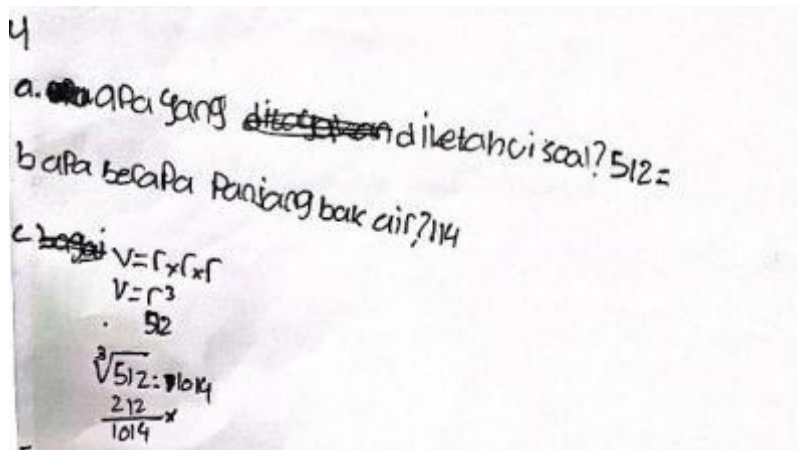 4
a. apa yang diketahui soal? 512 =
b apa berapa Panjang bak air? 114
c V = r x r x r
V = r³
512
³√512 : 1014
212 x
1014